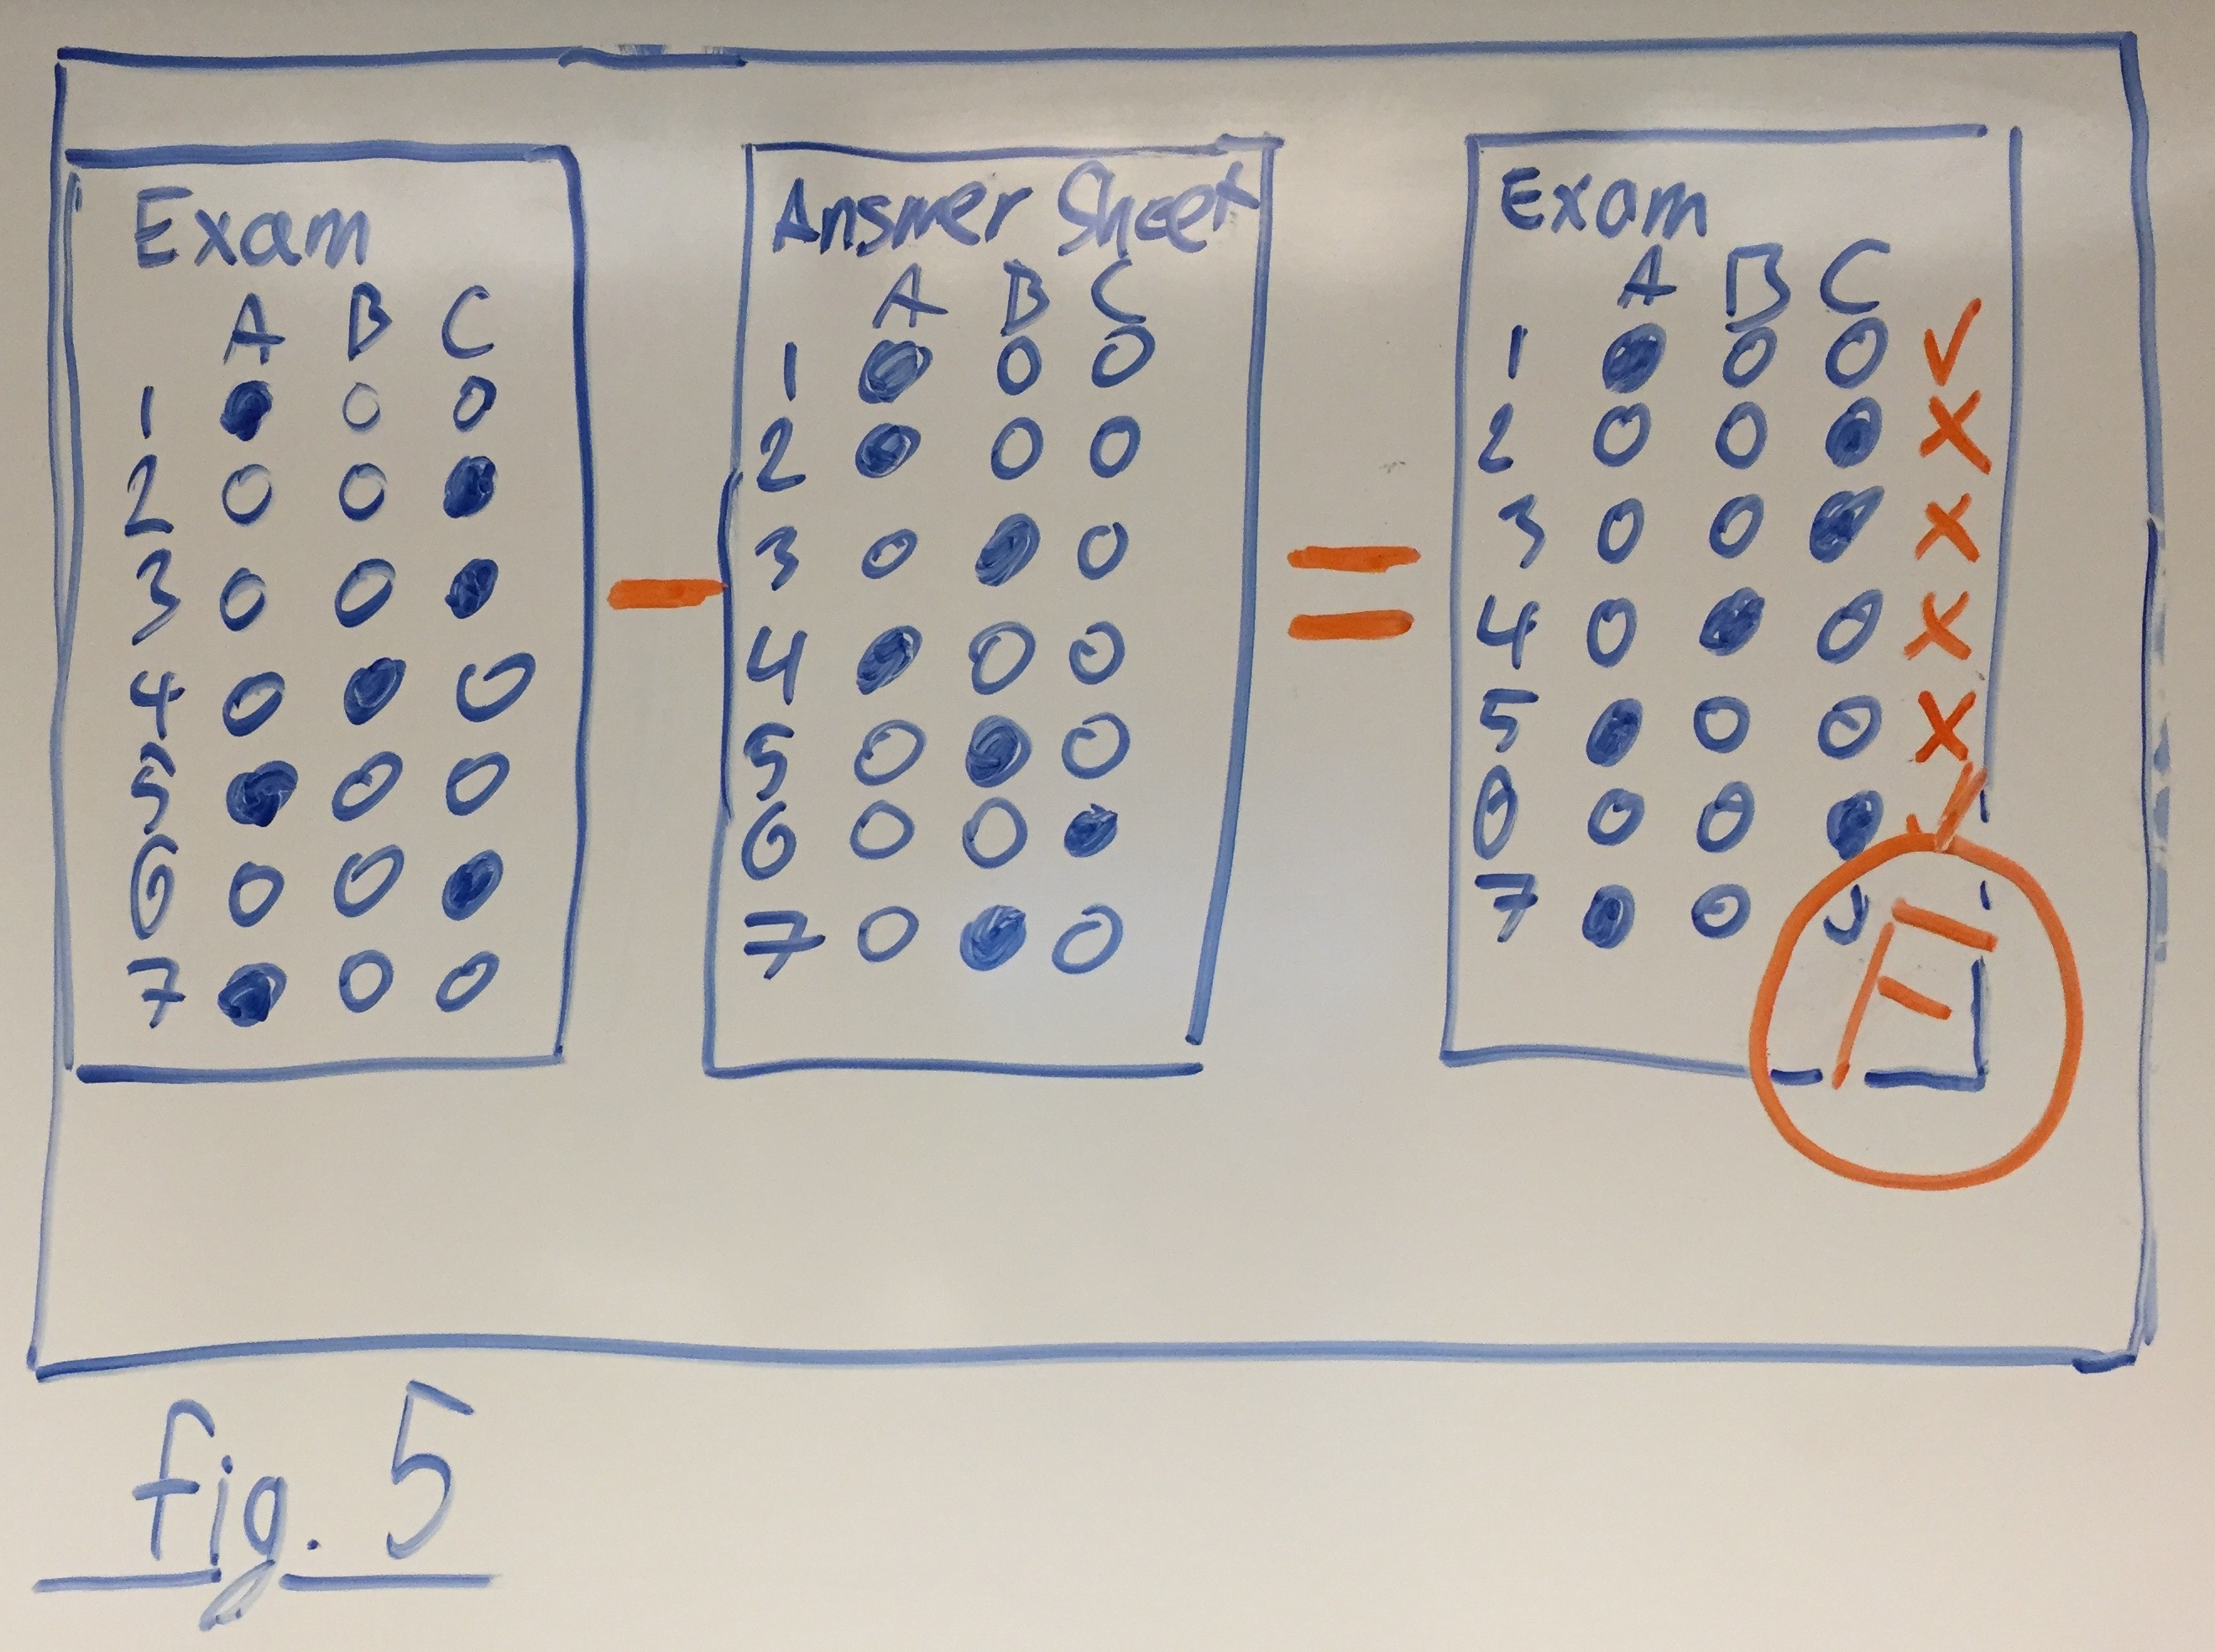 Exam
A B C
1
2
3
4
5
6
7
Answer Sheet
A B C
1
2
3
4
5
6
7
Exam
A B C
1
2
3
4
5
6
7
F
fig. 5